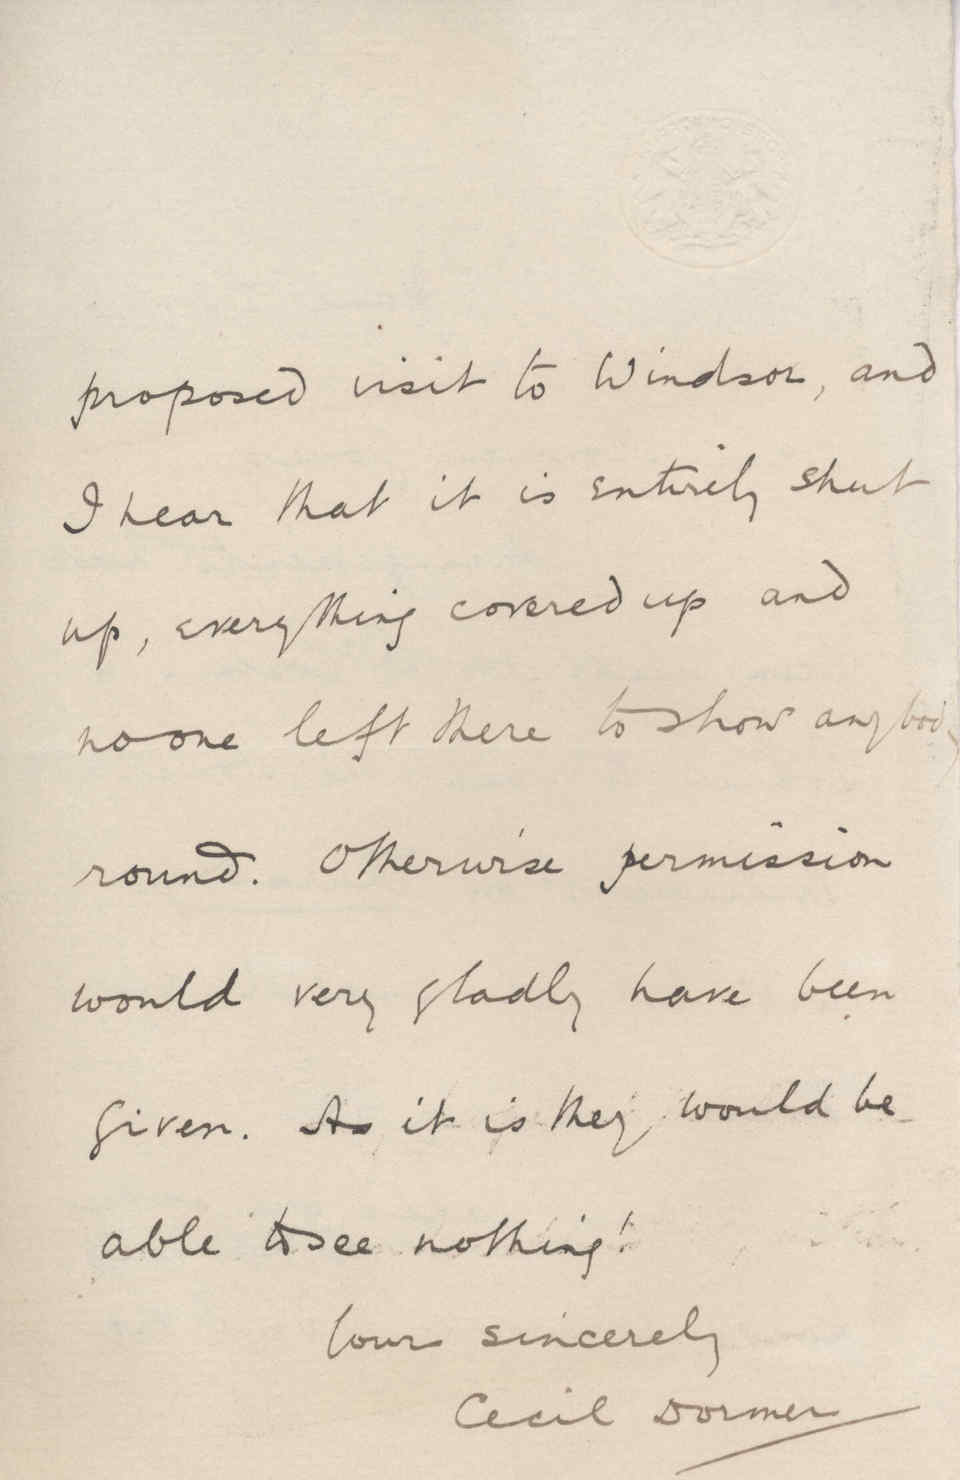 proposed visit to Windsor, and
I hear that it is entirely shut
up, everything covered up and
no one left there to show anybody
round. Otherwise permission
would very gladly have been
given. As it is they would be
able to see nothing!
Yours sincerely
Cecil Dormer